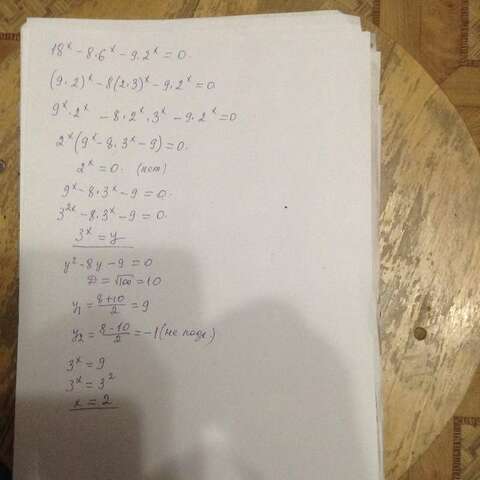 18ˣ - 8·6ˣ - 9·2ˣ = 0.
(9·2)ˣ - 8(2·3)ˣ - 9·2ˣ = 0
9ˣ·2ˣ - 8·2ˣ·3ˣ - 9·2ˣ = 0
2ˣ(9ˣ - 8·3ˣ - 9) = 0.
2ˣ = 0. (нет)
9ˣ - 8·3ˣ - 9 = 0.
3²ˣ - 8·3ˣ - 9 = 0.
3ˣ = y
y² - 8y - 9 = 0
D = √100 = 10
y₁ = (8+10)/2 = 9
y₂ = (8-10)/2 = -1 (не подх.)
3ˣ = 9
3ˣ = 3²
x = 2